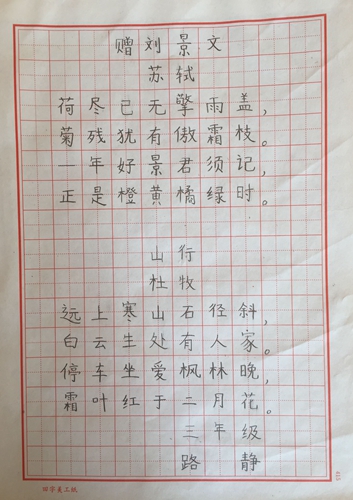 赠刘景文
苏轼
荷尽已无擎雨盖，
菊残犹有傲霜枝。
一年好景君须记，
正是橙黄橘绿时。
山行
杜牧
远上寒山石径斜，
白云生处有人家。
停车坐爱枫林晚，
霜叶红于二月花。
三年级
路静